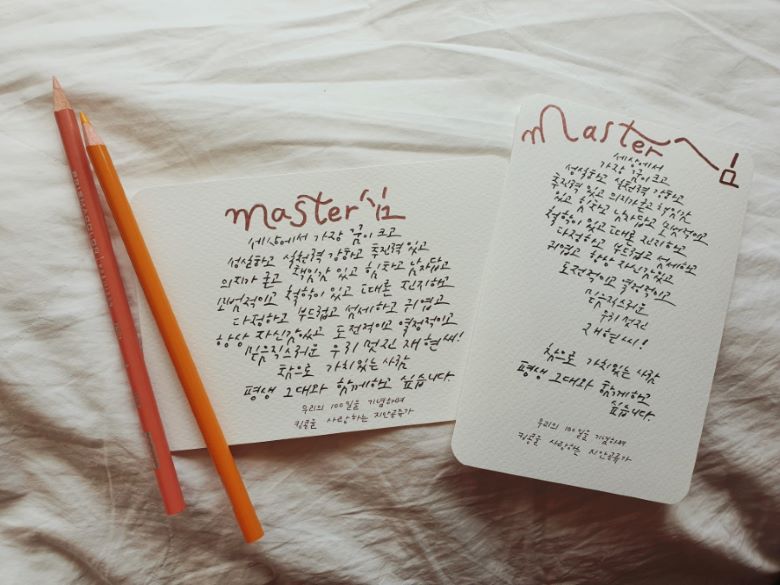 master심
세상에서 가장 꿈이 크고
성실하고 실천력 강하고 추진력 있고
의지가 굳고 책임감 있고 힘차고 남자답고
모범적이고 철학이 있고 때론 진지하고
다정하고 부드럽고 섬세하고 귀엽고
항상 자신감있고 도전적이고 열정적이고
믿음직스러운 우리 멋진 재현씨!
참으로 가치있는 사람
평생 그대와 함께하고 싶습니다.
우리의 100일을 기념하며
킹콩을 사랑하는 지안공주가
master심
세상에서
가장 꿈이 크고
성실하고 실천력 강하고
추진력 있고 의지가 굳고 책임감
있고 힘차고 남자답고 모범적이고
철학이 있고 때론 진지하고
다정하고 부드럽고 섬세하고
귀엽고 항상 자신감있고
도전적이고 열정적이고
믿음직스러운
우리 멋진
재현씨!
참으로 가치있는 사람
평생 그대와 함께하고
싶습니다.
우리의 100일을 기념하며
킹콩을 사랑하는 지안공주가